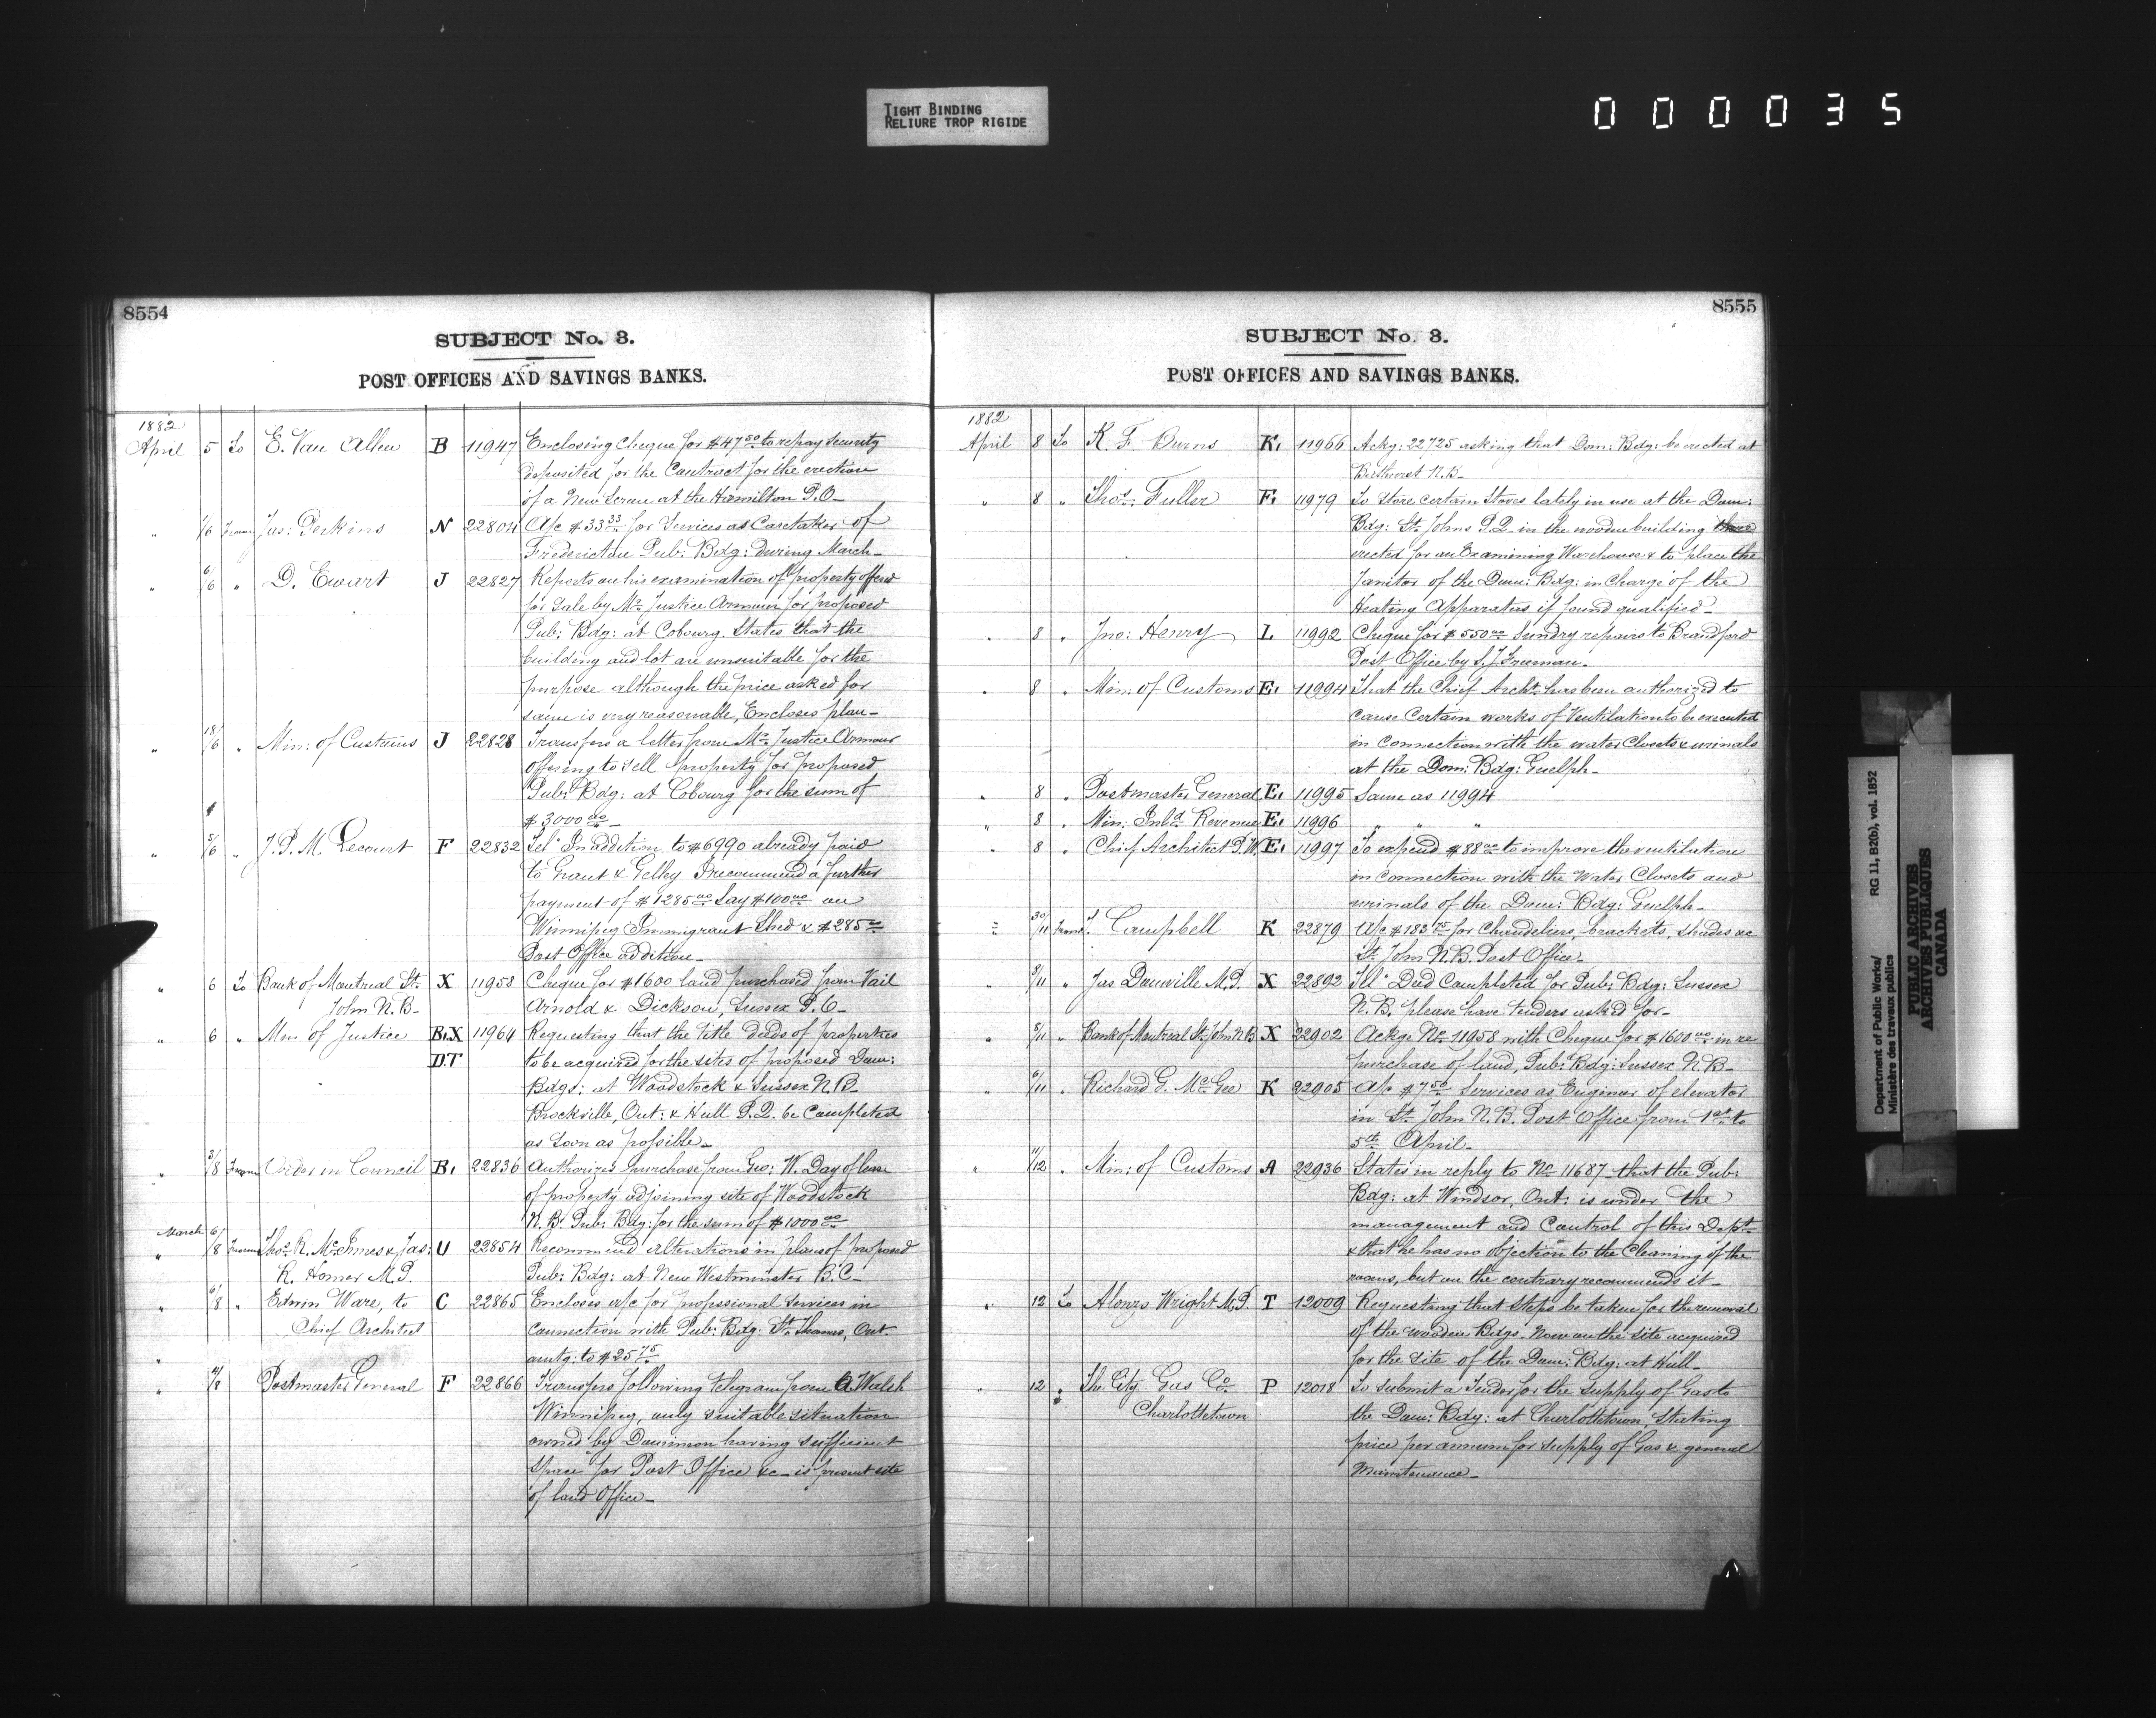 TIGHT BINDING
RELIURE TROP RIGIDE
000035
8554
SUBJECT No. 3.
POST OFFICES AND SAVINGS BANKS.
1882
April 5 To E. Van Allen B 11947 Enclosing Cheque for $47 50 to repay security
deposited for the Contract for the erection
of a New Screen at the Hamilton P.O.
" 1/6 From Jas: Perkins N 22804 A/c $33 33 for Services as Caretaker of
Fredericton Pub: Bdg: during March
" 6/6 " D. Ewart J 22827 Reports on his examination of property offered
for Sale by Mr. Justice Armour for proposed
Pub: Bdg: at Cobourg. States that the
building and lot are unsuitable for the
purpose although the price asked for
same is very reasonable, Encloses plan
" 18/6 " Min: of Customs J 22828 Transfers a letter from Mr. Justice Armour
offering to sell property for proposed
Pub: Bdg: at Cobourg for the sum of
$3000 00
" 5/6 " J. P. M. Lecourt F 22832 Tel" In addition to $6990 already paid
to Grant & Gelley I recommend a further
payment of $1285 00 Say $100 00 on
Winnipeg Immigrant Shed & $285 00
Post Office addition
" 6 To Bank of Montreal St. X 11958 Cheque for $1600 land purchased from Vail
John N.B. Arnold & Dickson, Sussex P.O.
" 6 " Min of Justice B.X 11964 Requesting that the title deeds of properties
D.T to be acquired for the sites of proposed Dom:
Bdgs: at Woodstock & Sussex N.B.
Brockville, Ont: & Hull P.Q. be Completed
as soon as possible
" 3/8 From Order in Council B. 22836 Authorizes purchase from Geo: W. Day of lease
of property adjoining site of Woodstock
N.B. Pub: Bdg: for the sum of $1000 00
March
" 6/8 From Thos. R. McInnes & Jas: U 22854 Recommend alterations in plans of proposed
R. Homer M.P. Pub: Bdg: at New Westminster B.C.
" 6/8 " Edwin Ware, to C 22865 Encloses a/c for professional services in
Chief Architect connection with Pub: Bdg: St. Thomas, Ont.
" amtg: to $25 75
" 4/8 Postmaster General F 22866 Transfers following telegram from A Walsh
Winnipeg, only suitable situation
owned by Dominion having sufficient
space for Post Office &c is present site
of land Office
8555
SUBJECT No. 3.
POST OFFICES AND SAVINGS BANKS.
1882
April 8 To K. F. Burns K. 11966 Ackg: 22725 asking that Dom: Bdg: be erected at
Bathurst N.B.
" 8 " Thos: Fuller E. 11979 To Store certain Stoves lately in use at the Dom:
Bdg: St. Johns P.Q. in the wooden building
erected for an Examining Warehouse & to place the
Janitor of the Dom: Bdg: in Charge of the
Heating Apparatus if found qualified
" 8 " Jno: Henry L 11992 Cheque for $550 00 Sundry repairs to Brandford
Post Office by S. J. Freeman
" 8 " Min: of Customs E. 11994 That the Chief Archt. has been authorized to
cause Certain works of Ventilation to be executed
in Connection with the water Closets & urinals
at the Dom: Bdg: Guelph
" 8 " Postmaster General E. 11995 Same as 11994
" 8 " Min: Inld. Revenue E. 11996 " " "
" 8 " Chief Architect P.W. E. 11997 To expend $88 00 to improve the ventilation
in connection with the Water Closets and
urinals of the Dom: Bdg: Guelph
" 30/11 From Campbell K 22879 A/c $183 75 for Chandeliers, brackets, shades &c
St. John N.B. Post Office
" 9/11 " Jas Domville M.P. X 22892 Tel" Deed Completed for Pub: Bdg: Sussex
N.B. please have tenders asked for
" 8/11 " Bank of Montreal St. John N B X 22902 Ackge No. 11958 with Cheque for $1600 00 in re
purchase of land, Pub: Bdg: Sussex N.B.
" 6/11 " Richard G. McGee K 22905 A/c $7 50 Services as Engineer of elevator
in St. John N.B. Post Office from 1st to
5th April
" 11/12 " Min: of Customs A 22936 States in reply to No 11687 that the Pub:
Bdg: at Windsor, Ont: is under the
management and Control of this Dept.
& that he has no objection to the Cleaning of the
rooms, but on the contrary recommends it
" 12 To Alonzo Wright M.P. T 12009 Requesting that steps be taken for the removal
of the wooden Bdgs. now on the site acquired
for the site of the Dom: Bdg: at Hull
" 12 " The City Gas Co. P 12018 To submit a Tender for the supply of Gas to
Charlottetown the Dom: Bdg: at Charlottetown, Stating
price per annum for supply of Gas & general
Maintenance
Department of Public Works/ RG 11, B2(b), vol. 1852
Ministère des travaux publics
PUBLIC ARCHIVES
ARCHIVES PUBLIQUES
CANADA